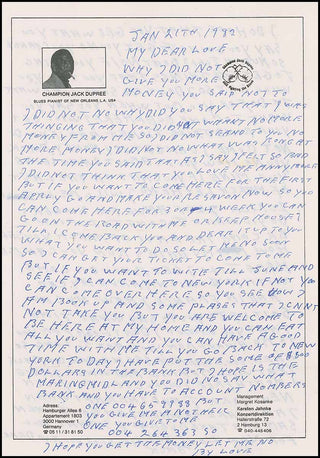 JAN 21TH 1982
MY DEAR LOVE
WHY I DID NOT
GIVE YOU MORE
MONEY YOU SAID NOT TO
CHAMPION JACK DUPREE
BLUES PIANIST OF NEW ORLEANS L.A. USA
I DID NOT NO WHY DID YOU SAY THAT I WAS
THINGING THAT YOU DID NOT WANT NO MORE
MONEY FROM ME SO I DID NOT SEAND TO YOU NO
MORE MONEY I DID NOT NO WHAT WAS RONG AT
THE TIME YOU SAID THAT AS I SAY I FELT SO BAD
I DID NOT THINK THAT YOU LOVE ME ANNY MORE
BUT IF YOU WANT TO COME HERE FOR THE FIRST
APPLY GO AND MAKE YOUR RESAVON NOW SO YOU
CAN COME HERE FOR 3 OR 4 WEEK YOU CAN
GO ON THE ROAD WITH ME OR KEEP HOUSE
TILL I COME BACK YOU AND DEAR IT UP TO YOU
WHAT YOU WANT TO DO SO LET ME NO SOON
SO I CAN GET YOUR TICKET TO COME TO ME
BUT IF YOU WANT TO WITE TILL JUNE AND
SEE IF I CAN COME TO NEW YORK IF NOT YOU
CAN COME OVER HERE SO YOU SEE HOW I
AM BOOK UP AND SOME PLASES THAT I CAN'T
NOT TAKE YOU BUT YOU ARE WELCOME TO
BE HERE AT MY HOME AND YOU CAN EAT
ALL YOU WANT AND YOU CAN HAVE A GOOD
TIME WITH ME TILL YOU GO BACK TO NEW
YORK TO DAY I HAVE PUT THE SOME OF $300
DOLLARS IN THE BANK BUT I HOPE IS THE
MAKING MIDLAND YOU DID NO SAY WHAT
BANK AND YOU HAVE TO ACCOUNT NOMBERS
ONE 00465-9998 BUT
YOU GIVE ME A NOTHEIR
ONE YOU GIVE ME
004 264 36 30
Address:
Hamburger Allee 6
Appartement 1803
3000 Hannover 1
Germany
☎ 05 11 / 31 81 50
Management
Margret Kosanke
Karsten Jahnke
Konzertdirektion
Hallerstraße 72
2 Hamburg 13
☎ 040-44 54 06
I HOPE YOU GET THE MONEY LET ME NO
BY LOVE